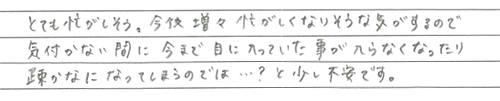 とても忙がしそう。今後増々忙がしくなりそうな気がするので
気付かない間に今まで目に入っていた事が入らなくなったり
疎かなになってしまうのでは…?と少し不安です。